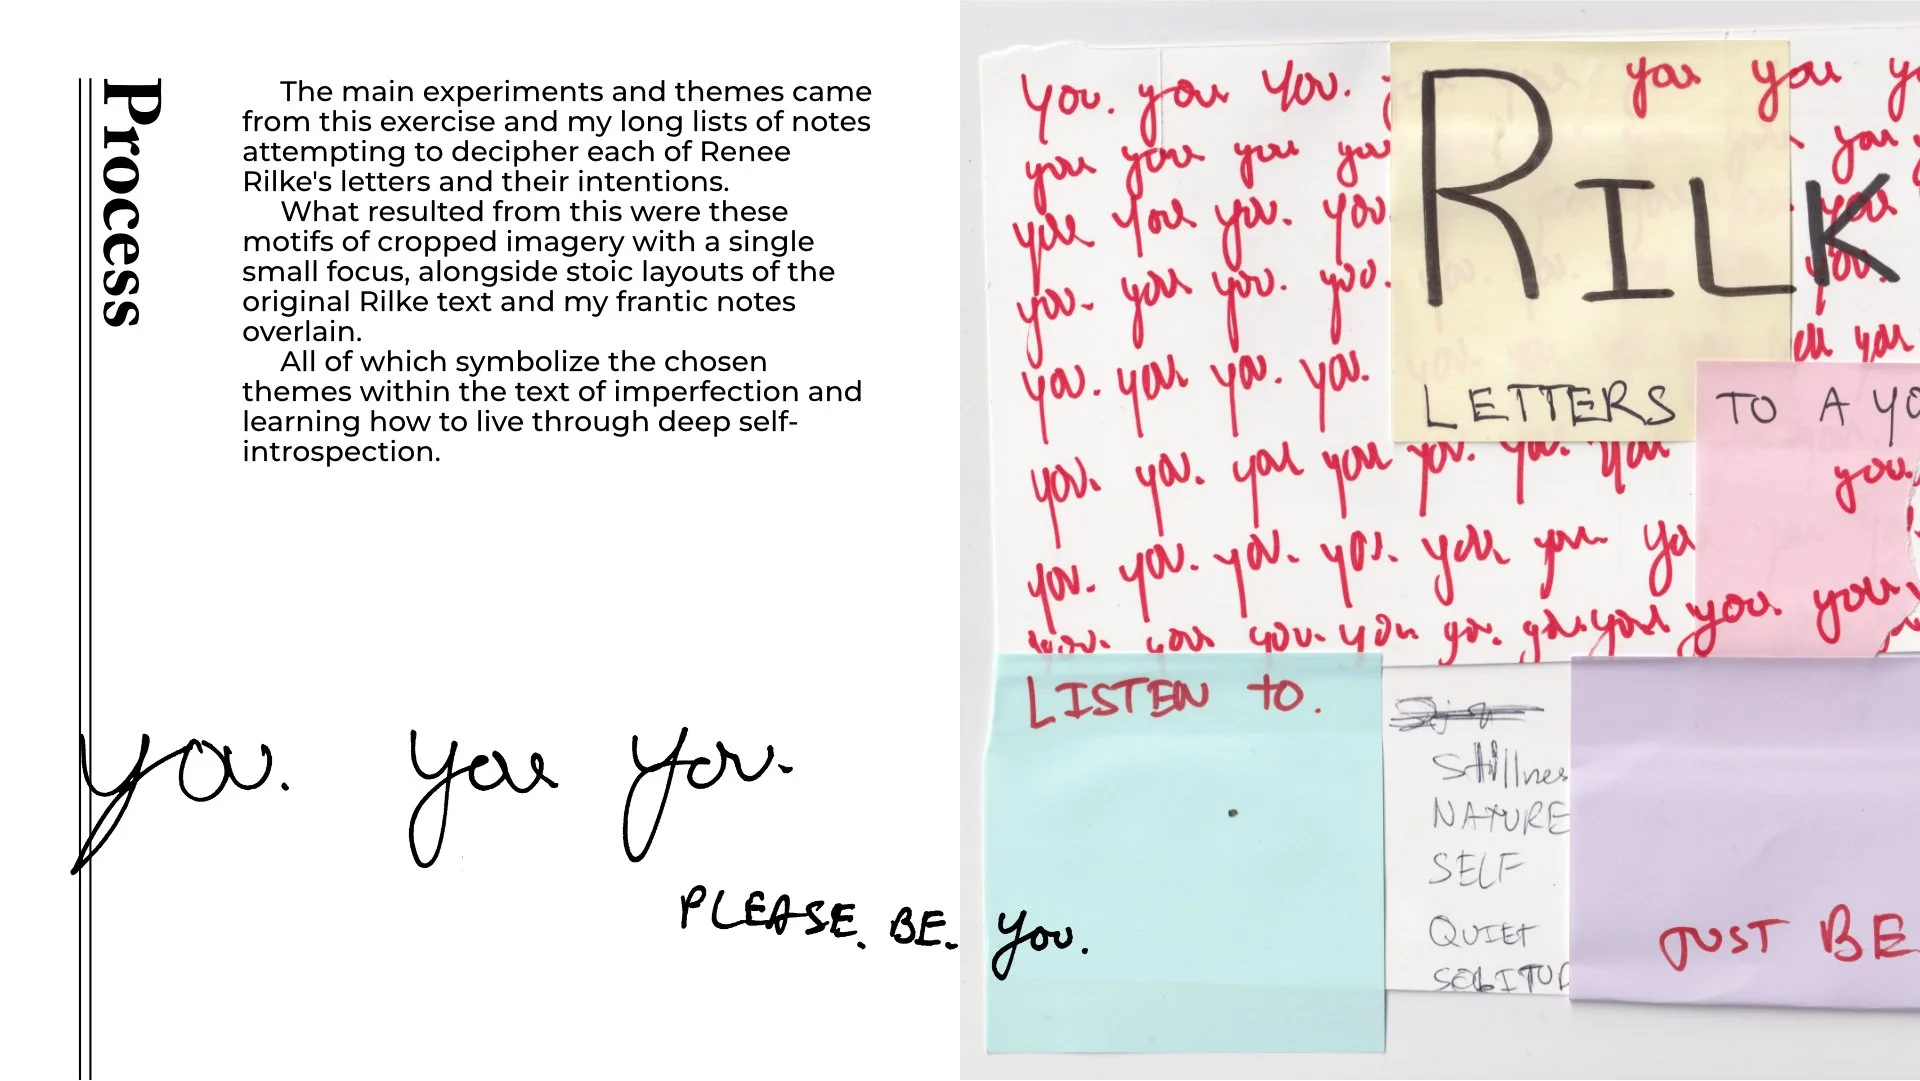 Process
The main experiments and themes came
from this exercise and my long lists of notes
attempting to decipher each of Renee
Rilke's letters and their intentions.
What resulted from this were these
motifs of cropped imagery with a single
small focus, alongside stoic layouts of the
original Rilke text and my frantic notes
overlain.
All of which symbolize the chosen
themes within the text of imperfection and
learning how to live through deep self-
introspection.
you. you you.
PLEASE. BE. you.
you. you you. you you
you you you you you
you you you. you. you
you. you you. you. you.
you. you you. you. you
RILK
LETTERS TO A YO
you. you. you you you. you. you you.
you. you. you. you. you you yo
you. you you. you you. you you you. you
LISTEN to.
Stillnes
NATURE
SELF
QUIET
SOLITUD
JUST BE